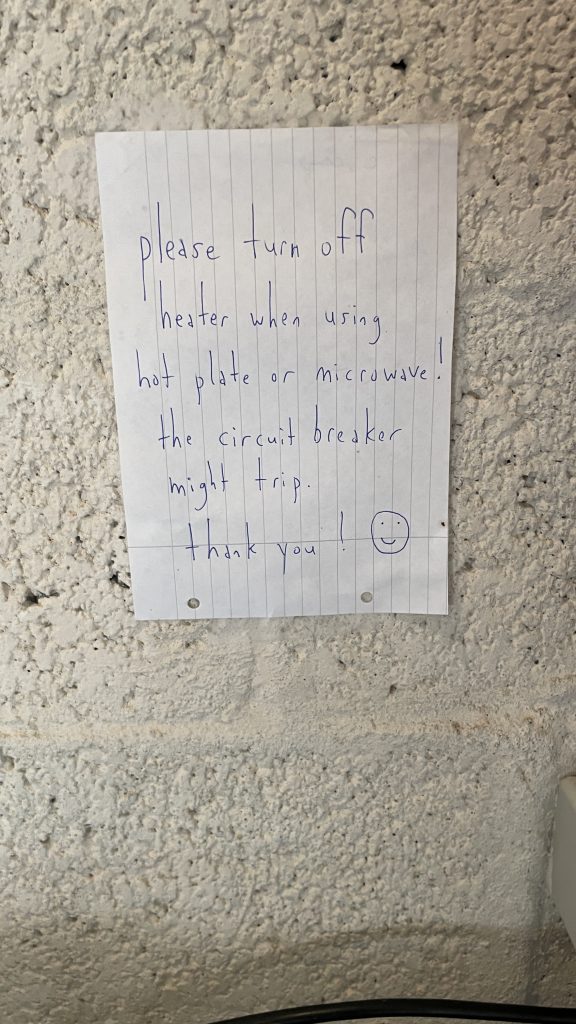 please turn off
heater when using
hot plate or microwave!
the circuit breaker
might trip.
thank you!